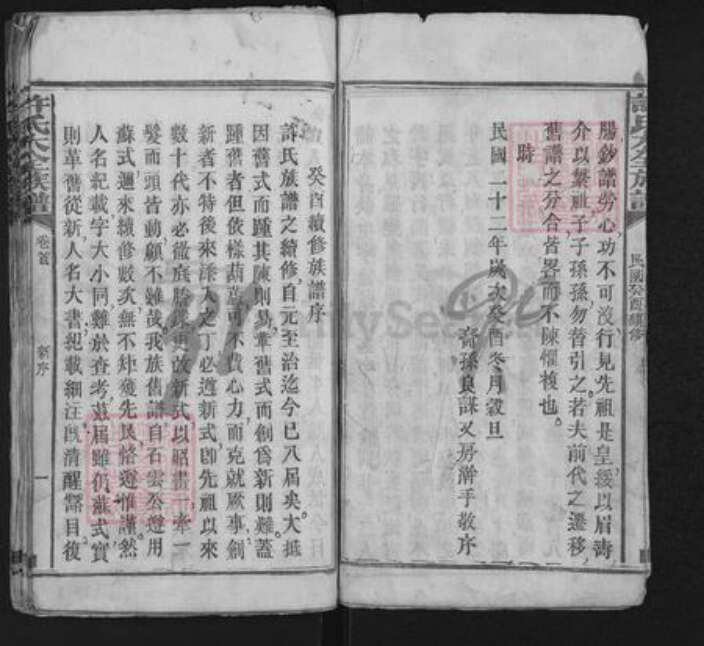 許氏大全族譜
民國癸酉續修
腸鈔譜勞心功不可没行見先祖是皇綏以眉壽
介以繁祉子子孫孫勿替引之若夫前代之遷移
舊譜之分合皆畧而不陳懼複也
時
民國二十二年歲次癸酉冬月穀旦
裔孫良謀又房瀚手敬序
癸酉續修族譜序
許氏族譜之續修自元至治迄今已八屆矣大抵
因舊式而踵其陳則易革舊式而創為新則難蓋
踵舊者但依樣葫蘆可不費心力而克就厥事創
新者不特後來添入之丁必遵新式卽先祖以來
數十代亦必徹底更改新式以昭畫一牽一
髮而頭皆動顧不難哉我族舊譜自石雲公遵用
蘇式迦來續修數次無不矩矱先民恪遵惟謹然
人名紀載字大小同難於查考茲屆雖仍蘇式實
則革舊從新人名大書紀載細注旣清醒豁目復
許氏大全族譜
卷首
新序
一